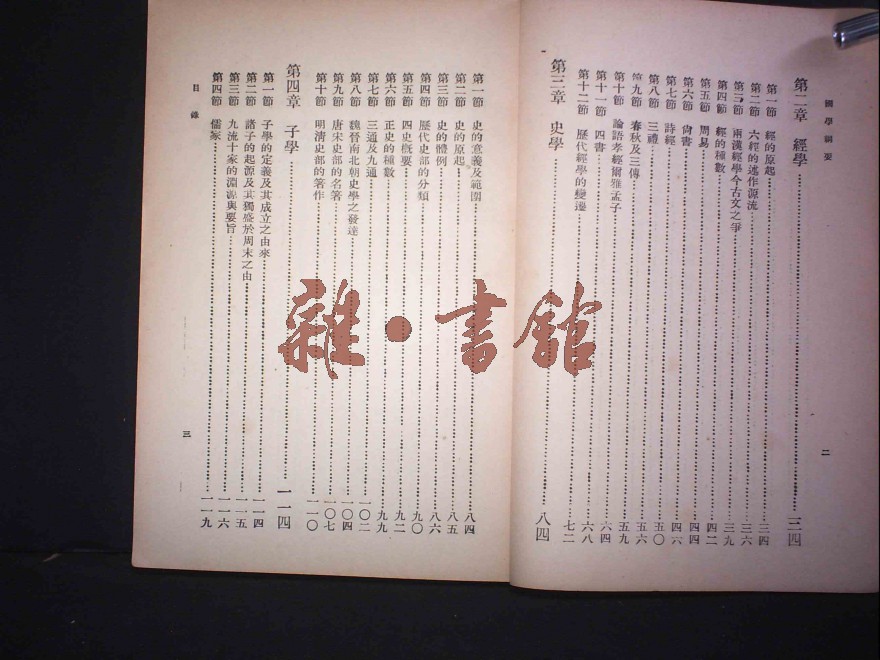 國學綱要
第二章 經學……三四
第一節 經的原起……三四
第二節 六經的述作源流……三六
第三節 兩漢經學今古文之爭……三九
第四節 經的種數……四二
第五節 周易……四四
第六節 尙書……四六
第七節 詩經……四六
第八節 三禮……五〇
第九節 春秋及三傳……五六
第十節 論語孝經爾雅孟子……五九
第十一節 四書……六四
第十二節 歷代經學的變遷……七二
第三章 史學……八四
二
第一節 史的意義及範圍……八四
第二節 史的原起……八五
第三節 史的體例……八六
第四節 歷代史部的分類……九〇
第五節 四史概要……九二
第六節 正史的種數……九九
第七節 三通及九通……一〇二
第八節 魏晉南北朝史學之發達……一〇四
第九節 唐宋史部的名著……一〇七
第十節 明清史部的著作……一一〇
第四章 子學……一一四
第一節 子學的定義及其成立之由來……一一四
第二節 諸子的起源及其獨盛於周末之由……一一五
第三節 九流十家的淵源與要旨……一一六
第四節 儒家……一一九
目錄
三
雜·書館